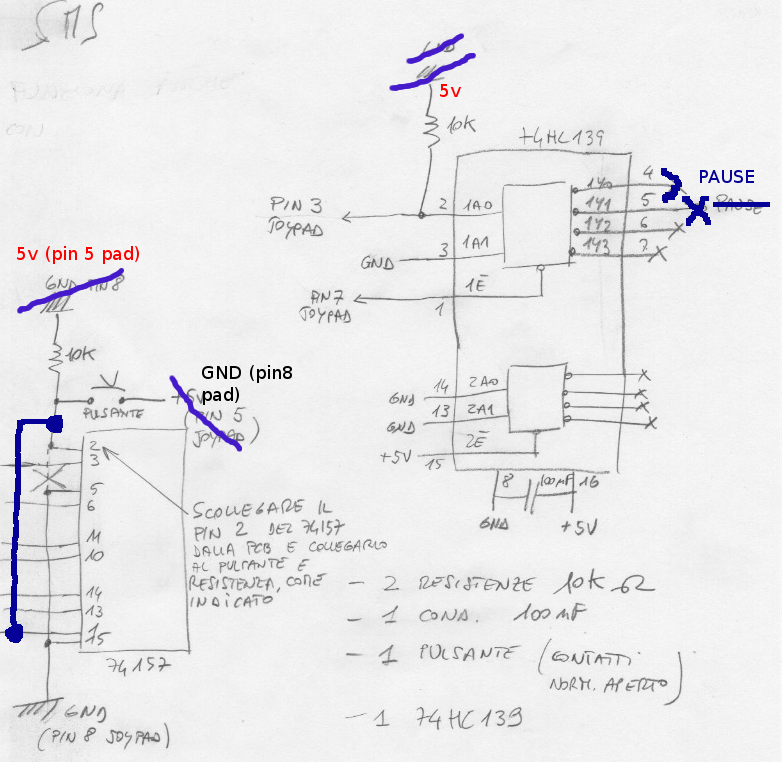 SMS
GND
5v
10K
74HC139
PIN 3
JOYPAD
2 1A0
1Y0 4
PAUSE
1Y1 5
PAUSE
1Y2 6
1Y3 7
GND 3 1A1
PIN 7
JOYPAD
1 1E
5v (pin 5 pad)
GND PIN 8
10K
PULSANTE
+5V
(PIN 5
JOYPAD)
GND (pin8
pad)
2
3
5
6
11
10
14
13
1
15
74157
GND
(PIN 8 JOYPAD)
SCOLLEGARE IL
PIN 2 DEL 74157
DALLA PCB E COLLEGARLO
AL PULSANTE E
RESISTENZA, COME
INDICATO
GND 14 2A0
GND 13 2A1
+5V 15 2E
8 100nF 16
GND +5V
- 2 RESISTENZE 10K Ω
- 1 COND. 100nF
- 1 PULSANTE (CONTATTI
NORM. APERTO)
- 1 74HC139